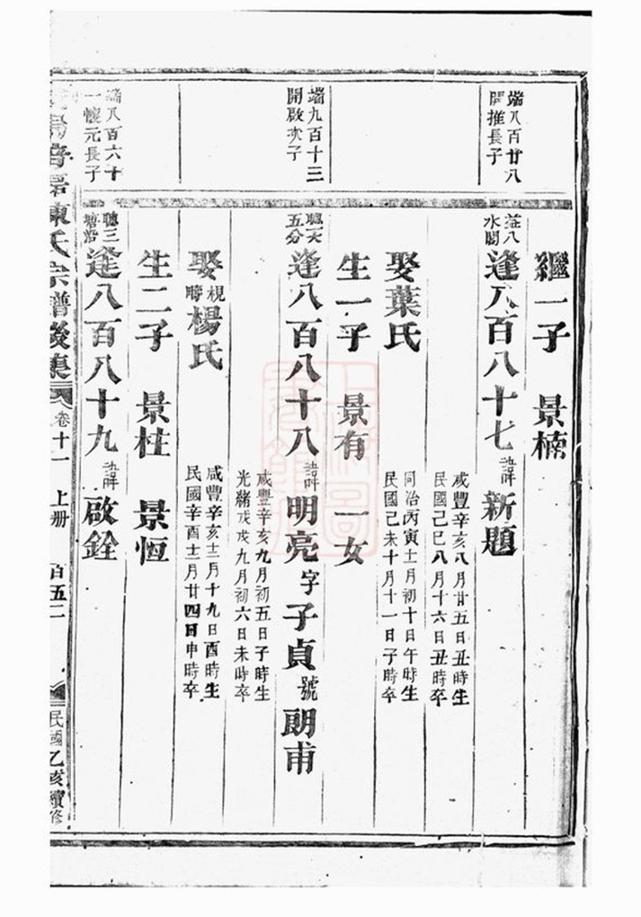 繼一子 景楠
端八百廿八
開推長子
益八
水閣
逢八百八十七 諱 新題
咸豐辛亥八月廿五日丑時生
民國己巳八月十六日丑時卒
娶葉氏
同治丙寅十二月初十日午時生
民國己未十月十一日子時卒
生一子 景有 一女
端九百十三
開啟次子
聽六
五分
逢八百八十八 諱 明亮 字 子貞 號 朗甫
咸豐辛亥九月初五日子時生
光緒戊戌九月初六日未時卒
娶
時
楊氏
咸豐辛亥十二月十九日酉時生
民國辛酉十二月廿四日申時卒
生二子 景柱 景恒
端八百六十
一懷元長子
聽三
塘沿
逢八百八十九 諱 啟銓
陳氏宗譜後集 卷十一 上册 百五二 民國乙亥續修